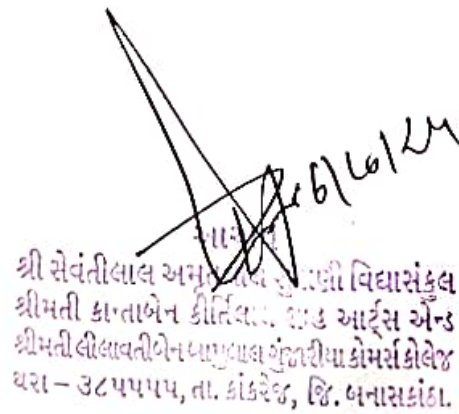 6/10/25
આચાર્ય
શ્રી સેવંતીલાલ વિદ્યાસંકુલ
શ્રીમતી કાન્તાબેન કીર્તિલાલ શાહ આર્ટ્સ એન્ડ
શ્રીમતી લીલાવતીબેન બાપુલાલ ગુંજારીયા કોમર્સ કોલેજ
થરા – ૩૮૫૫૫૫, તા. કાંકરેજ, જિ. બનાસકાંઠા.